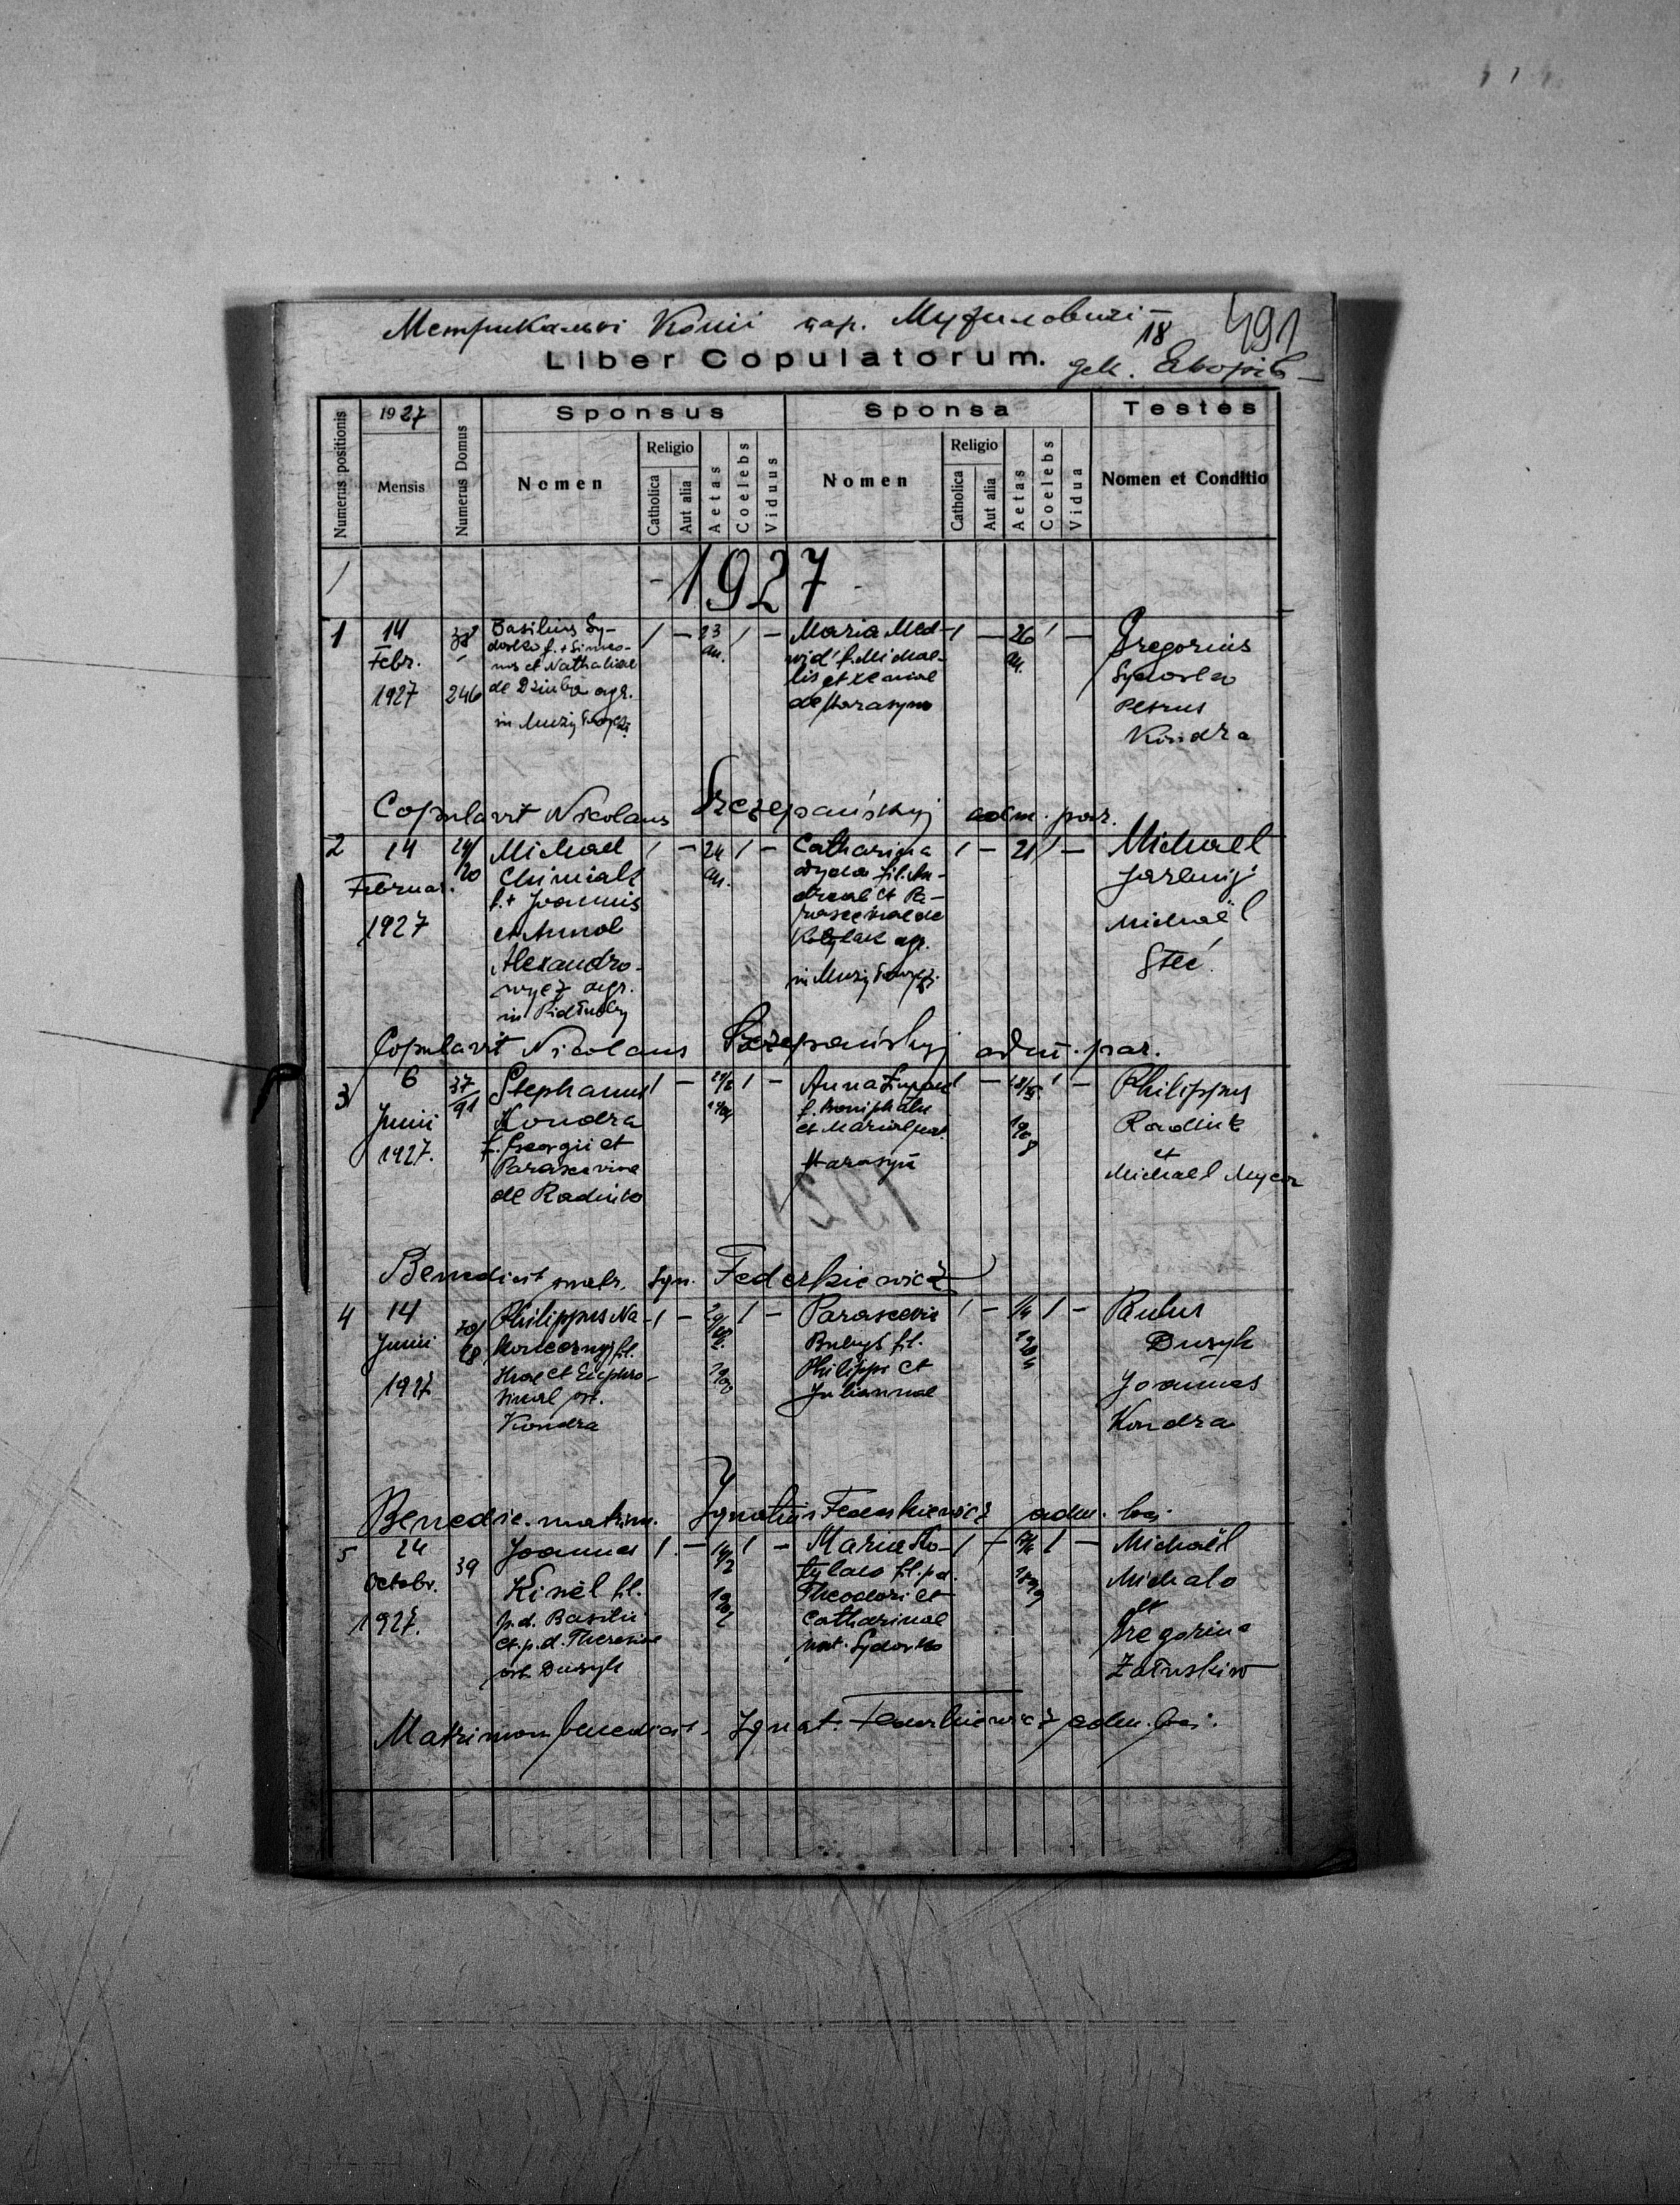 Метрикальні Копії пар. Мужиловичі
18
491
Liber Copulatorum.
дек. Яворів
Numerus positionis
1927
Mensis
Numerus Domus
Sponsus
Nomen
Religio
Catholica
Aut alia
Aetas
Coelebs
Viduus
Sponsa
Nomen
Religio
Catholica
Aut alia
Aetas
Coelebs
Vidua
Testes
Nomen et Conditio
- 1927 -
1
14
Febr.
1927
38
246
Basilius Sy-
dorko f. + Simeo-
nis et Nathaliae
de Dziuba agr.
in
/ - 23 / -
an.
Maria Med-
wid' f. Michae-
lis et Xeniae
de Harasym
/ - 26 / -
an.
Gregorius
Sydorko
Petrus
Kondra
Copulavit Nicolaus Szczepańskyj adm. par.
2
14
Februar.
1927
29/
20
Michael
f. + Joannis
et Annae
Alexandro-
wycz agr.
in
/ - 24 / -
an.
Catharina
Dyda fil. An-
dreae et Pa-
rasceviae de
Kotylak agr.
in
/ - 21 / -
Michael
Jaremij
Michaël
Steć
Copulavit Nicolaus Szczepańskyj adm. par.
3
6
Junii
1927.
37
91
Stephanus
Kondra
f. Georgii et
Parasceviae
de Radiuko
/ - / -
Anna
f. Boniphatii
et Mariae nat.
Harasym
/ - / -
Philippus
Radiuk
et
Michael Mycar
Benedixit matr. Ign. Federkiewicz
4
14
Junii
1927
70/
68
Philippus Na-
konecznyj fil.
Eliae et Euphro-
sinae ort.
Kondra
/ - / -
Parascevia
fil.
Philippi et
Juliannae
/ - / -
Dusyk
Joannes
Kondra
Benedic. matrim. Ignatius Federkiewicz adm.
5
24
Octobr.
1927.
39
Joannes
Kisiel fil.
p. d. Basilii
et p. d. Theresiae
ort. Dusyk
/ - / -
Maria Ko-
tylako fil. p. d.
Theodori et
Catharinae
nat. Sydorko
/ - / -
1899
Michaël
Michalo
et
Gregorius
Załuskiw
Matrimon. benedixit Ignat. Federkiewicz adm.